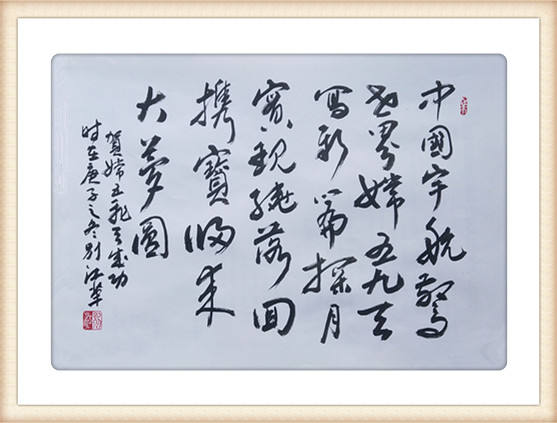 中國宇航驚
世界嫦五九天
寫新篇探月
實現繞落回
携寶歸来
大夢圓
賀嫦五飛天成功
时在庚子之冬